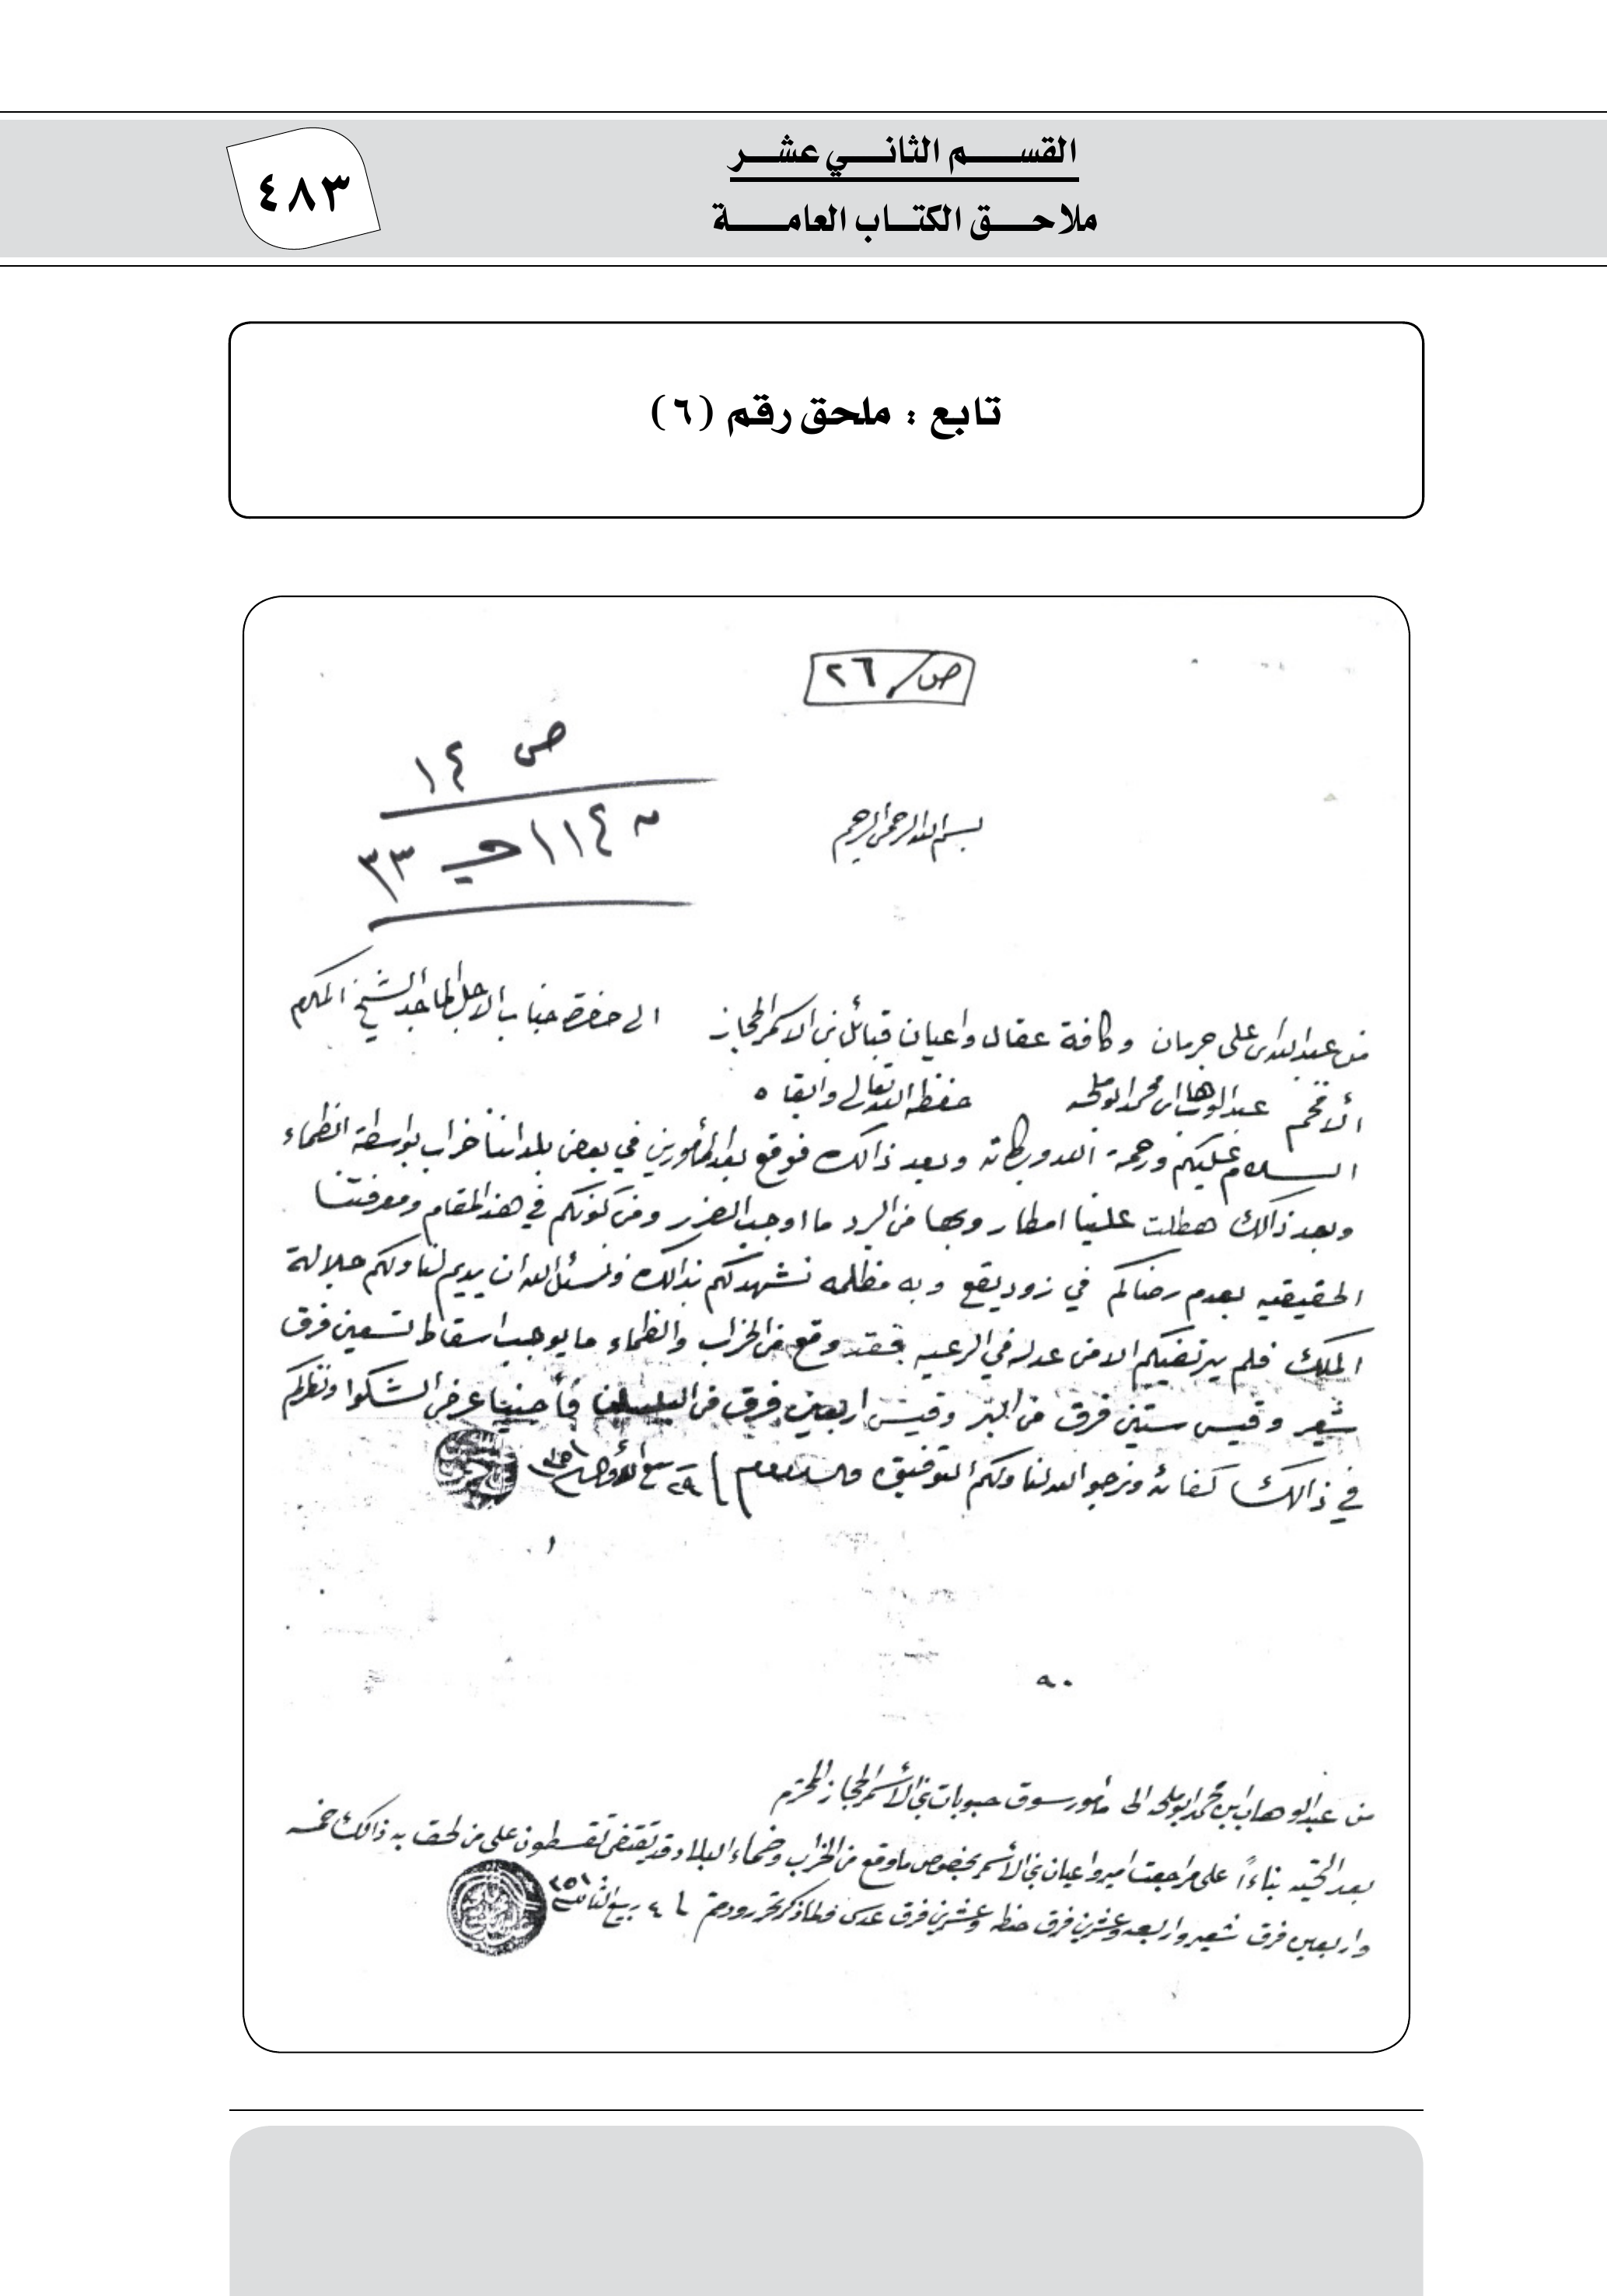 القسم الثاني عشر
ملاحق الكتاب العامة
٤٨٣
تابع : ملحق رقم (٦)
ص/٢٦
ص ١٤
١١٤ حـ ٣٣
بسم الله الرحمن الرحيم
من عبدالله بن علي حرمان وكافة عقال واعيان قبائل بني الاسمر الحجاز الى حضرة جناب الاجل الماجد الشيخ المكرم
ألافخم عبدالوهاب ابن محمد ابوملحه حفظه الله تعالى وابقاه
السلام عليكم ورحمة الله وبركاته وبعد ذالك فوقع بعد المأمورين في بعض بلداننا خراب بواسطة الظماء
وبعد ذالك هطلت علينا امطار وبها من البرد ما اوجب الضرر ومن كونكم في هذ المقام ومعرفتنا
الحقيقيه بعدم رضاكم في زود يقع وبه مظلمه نشهدكم بذالك ونسئل الله أن يديم لنا ولكم جلالة
الملك فلم يرتضيكم الا من عدله في الرعيه فقد وقع من الخراب والظماء ما يوجب اسقاط تسعين فرق
شعير وقيس ستين فرق من البر وقيس اربعين فرق من فأحنينا عرض الشكوا ونظركم
في ذالك كفائه ونرجو الله لنا ولكم التوفيق والسلام ٢٩ ربيع الأول ١٣٥١
٩٠
من عبدالوهاب ابن محمد ابوملحه الى مأمور سوق حبوبات بني الأسمر الحجاز المحترم
بعد التحيه بناءاً على مراجعت امير واعيان بني الأسمر بخصوص ما وقع من الخراب وضماء البلاد قد يقتضى تقسطون على من لحق به ذالك خمسه
واربعين فرق شعير واربعه وعشرين فرق حنطه وعشرين فرق عدس فلما ذكر تحرر ودمتم ٤ ربيع الثاني ١٣٥١